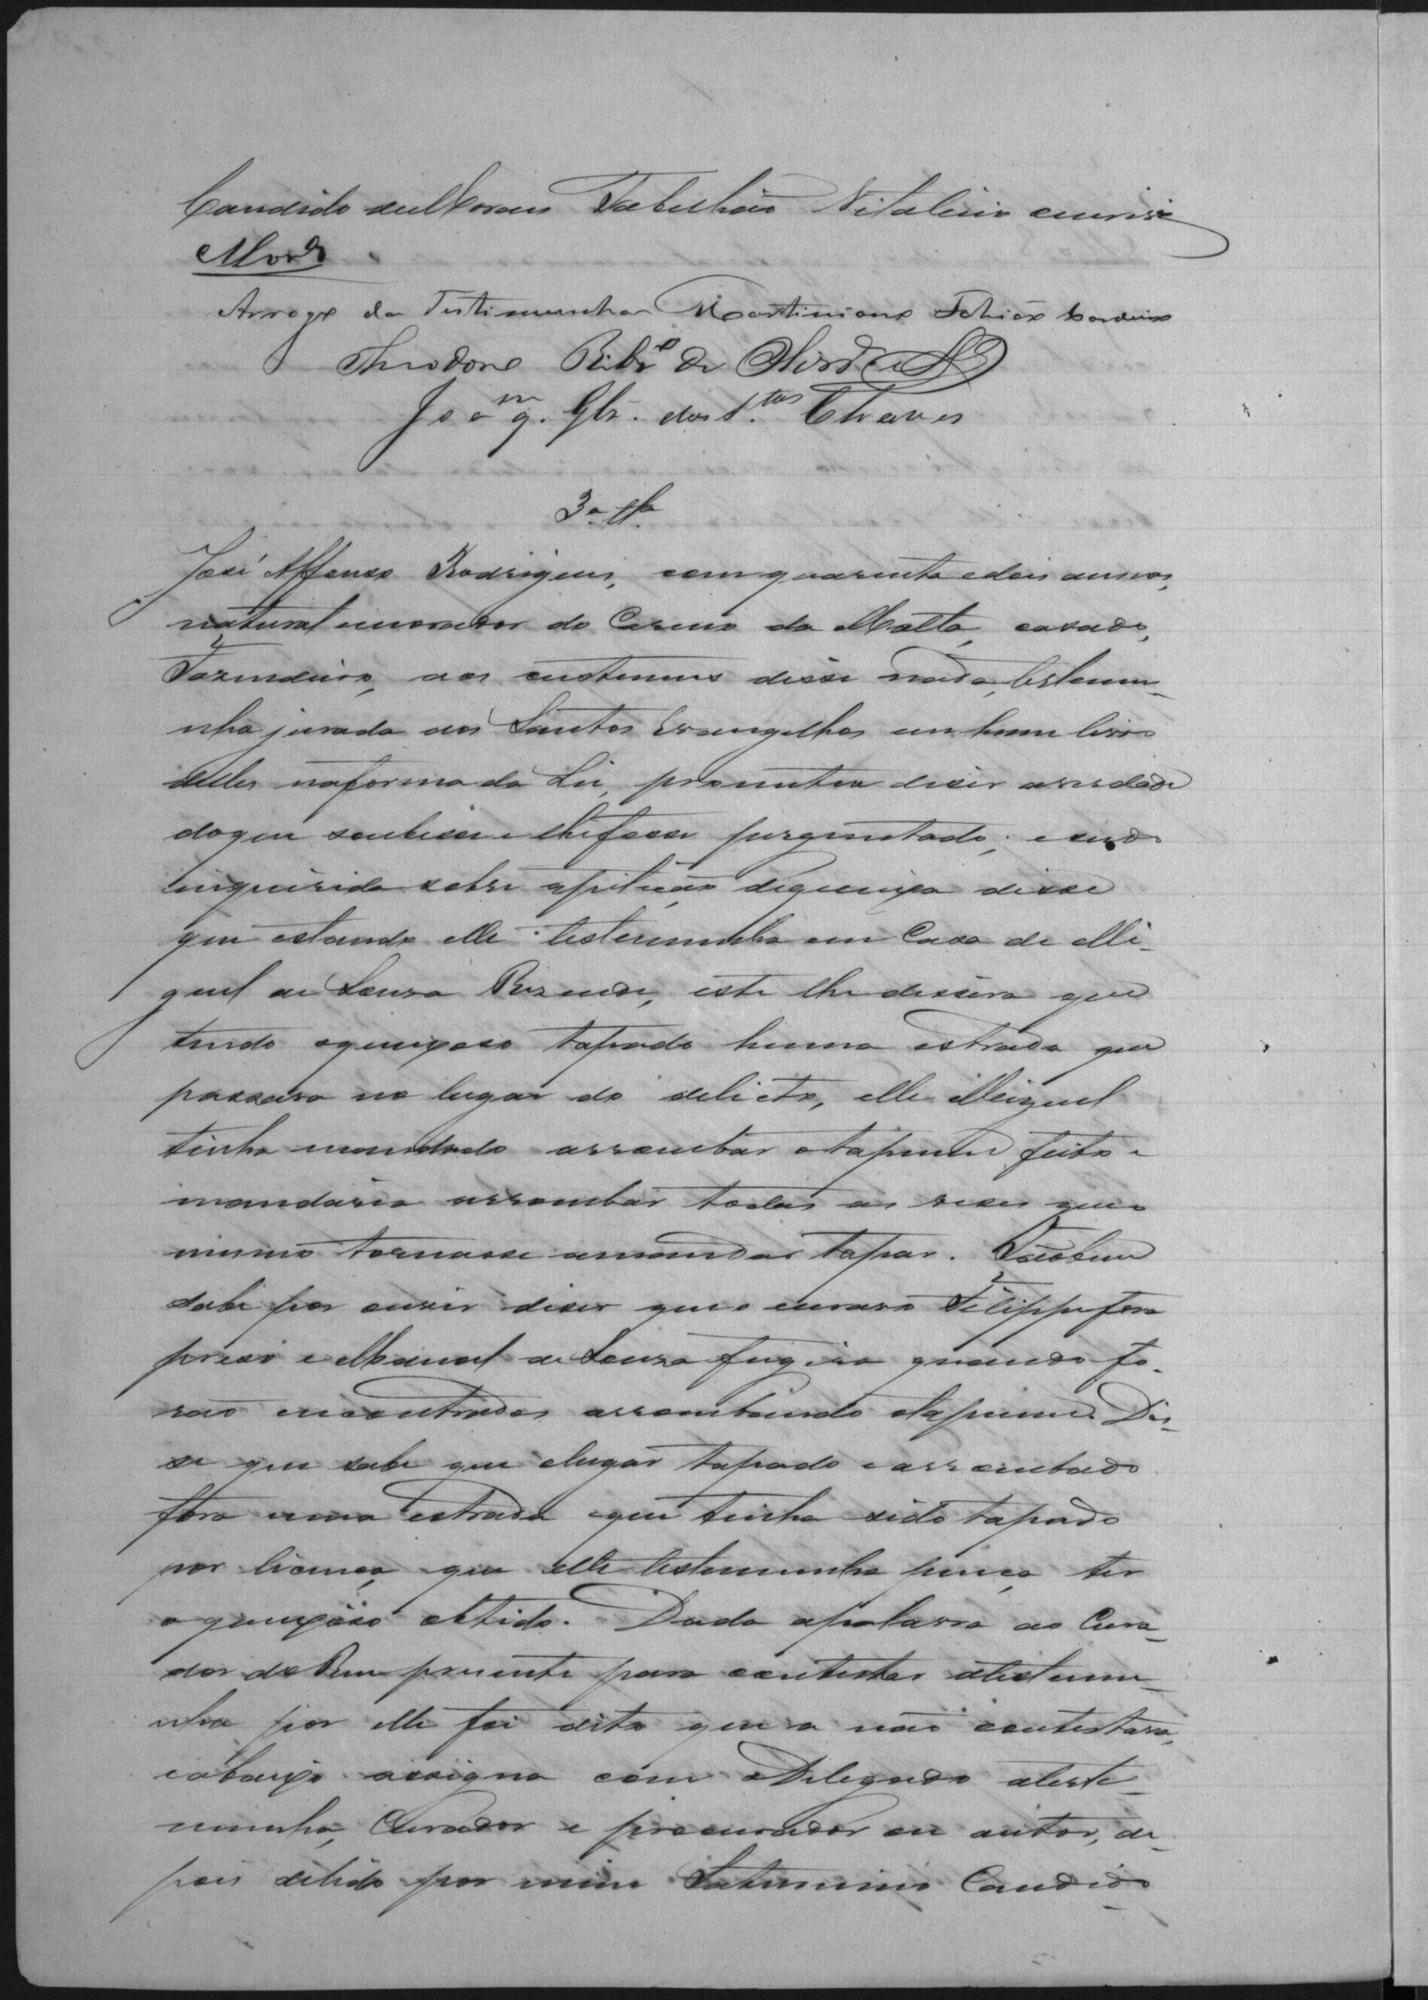 Candido de Moraes Tabelhião Vitalicio escrivi
Mor.s
Arrogo da Testimunha Martiniano Cordeiro
Theodoro Ribr.o de
Joaq.m Glz. dos S.tos Chaves
3.a tt.a
José Affonso Rodrigues, com quarenta e dois annos,
natural e morador do Carmo da Matta, casado,
Fazendeiro, aos custumes disse nada, testemu-
nha jurada aos Santos Evangelhos em hum livro
delles na forma da Lei, prometeu diser a verdade
do que soubesse e lhe fosse perguntado; e sendo
inquirida sobre a pitição de queixa disse
que estando elle testemunha em Casa de Mi-
guel de Souza Rezende, este lhe dissera que
tendo o queixoso tapado huma estrada que
passava no lugar do delicto, elle Miguel
tinha mandado arrombar o tapume feito e
mandaria arrombar todas as veses que o
mesmo tornasse a mandar tapar. Tãobem
sabe por ouvir diser que o escravo Felippe fora
preso e Manoel de Souza fugira quando fo-
rão encontrados arrombando o tapume. Dis-
se que sabe que o lugar tapado e arrombado
fora uma estrada que tinha sido tapado
por licença que elle testemunha pença ter
o queixoso obtido. Dada a palavra ao Cura-
dor do Reu presente para contestar a testemu-
nha por elle foi dito que a não contestava,
e abaixo assigna com o Delegado a teste-
munha, Curador e procurador do autor, de
pois de lido por mim Saturnino Candido